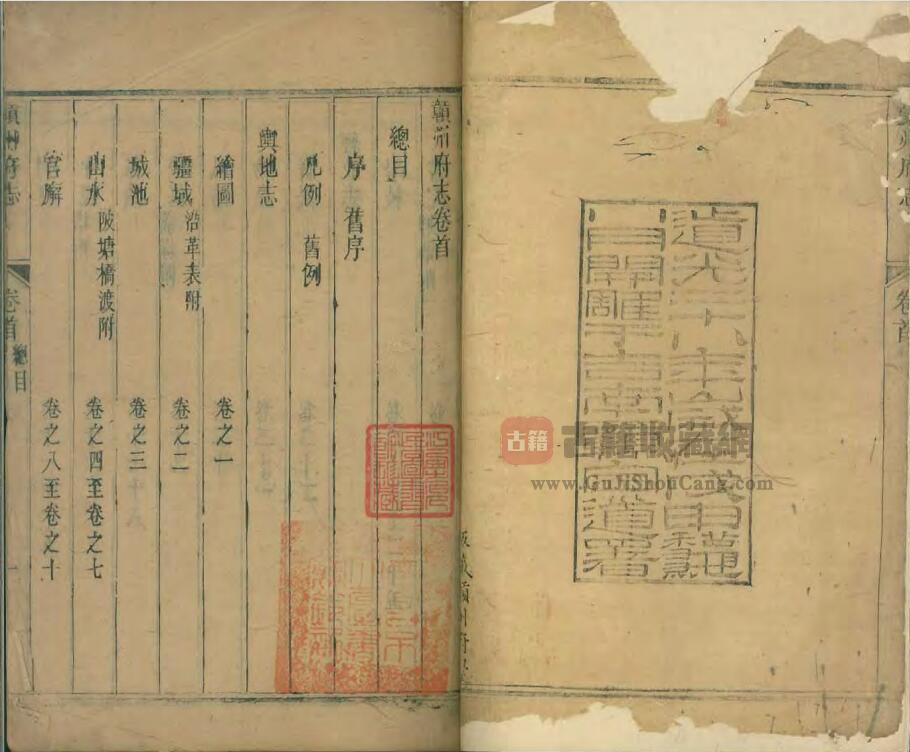 州府志
卷首
道光二十八年歲在戊申龝
開雕于吉南贛甯道署
古籍
古籍收藏網
www.GuJiShouCang.com
贛州府志卷首
總目
序 舊序
凡例 舊例
輿地志
繪圖 卷之一
疆域 沿革表附 卷之二
城池 卷之三
山水 陂塘橋渡附 卷之四至卷之七
官廨 卷之八至卷之十
贛州府志 卷首 總目 一